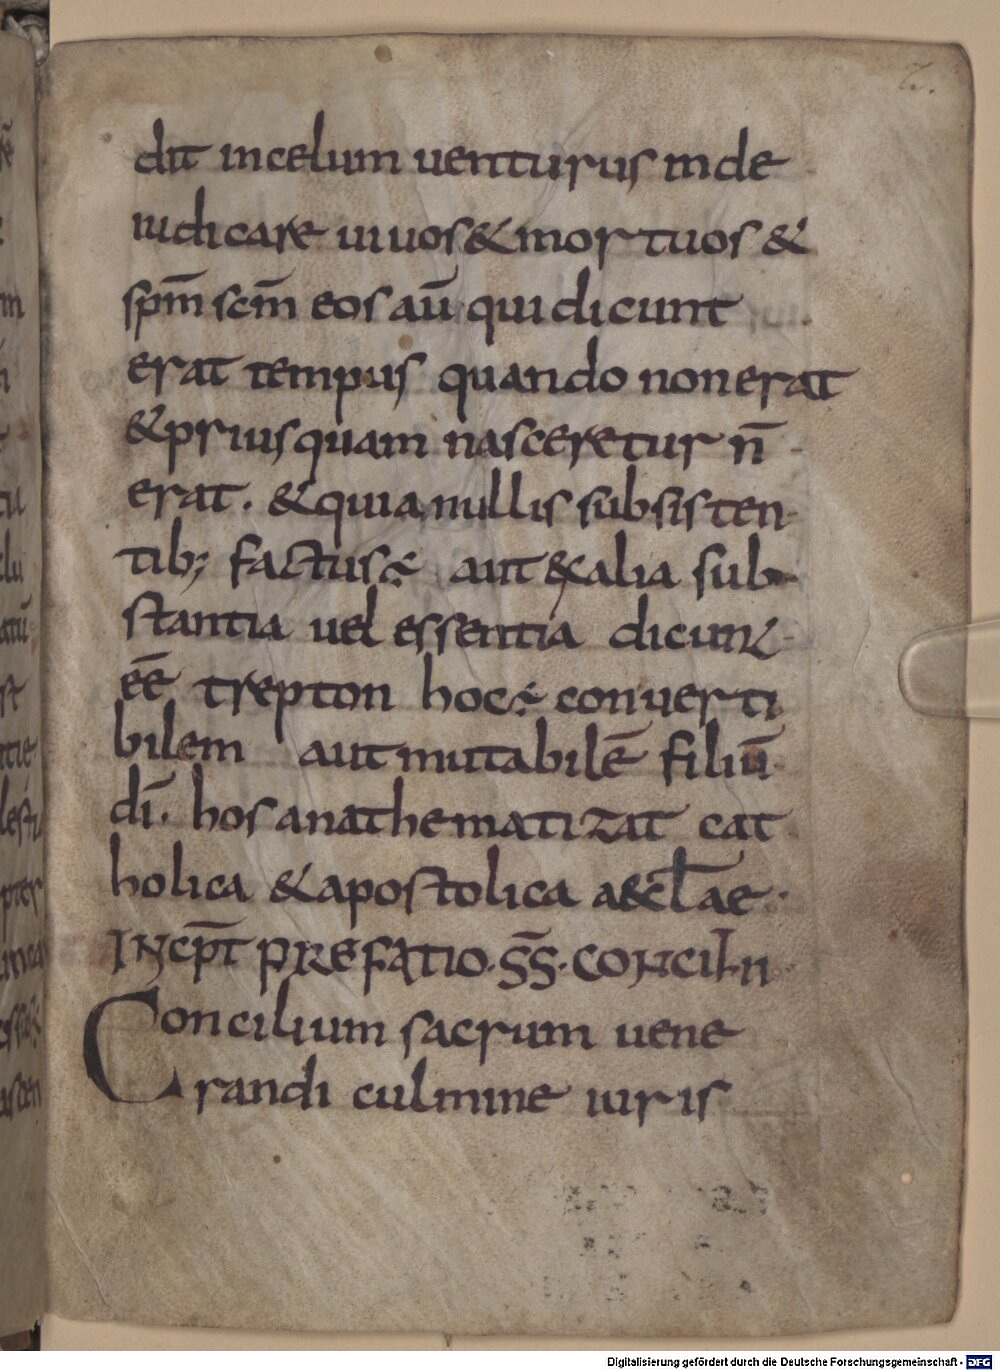 2.
dit incelum uenturus inde
iudicare uiuos & mortuos &
spm̄ scm̄ eos aū qui dicunt
erat tempus quando non erat
& priusquam nasceretur n̄
erat. & quia nullis subsisten
tib; factus ÷ aut & alia sub
stantia uel essentia dicunt
ēē trepton hoc ÷ conuerti
bilem aut mutabilē filiū
dī. hos anathematizat cat
holica & apostolica aeccl̄ae.
INCPT̄ PREFATIO. S̄S̄. CONCILII
Concilium sacrum uene
randi culmine iuris
Digitalisierung gefördert durch die Deutsche Forschungsgemeinschaft - DFG